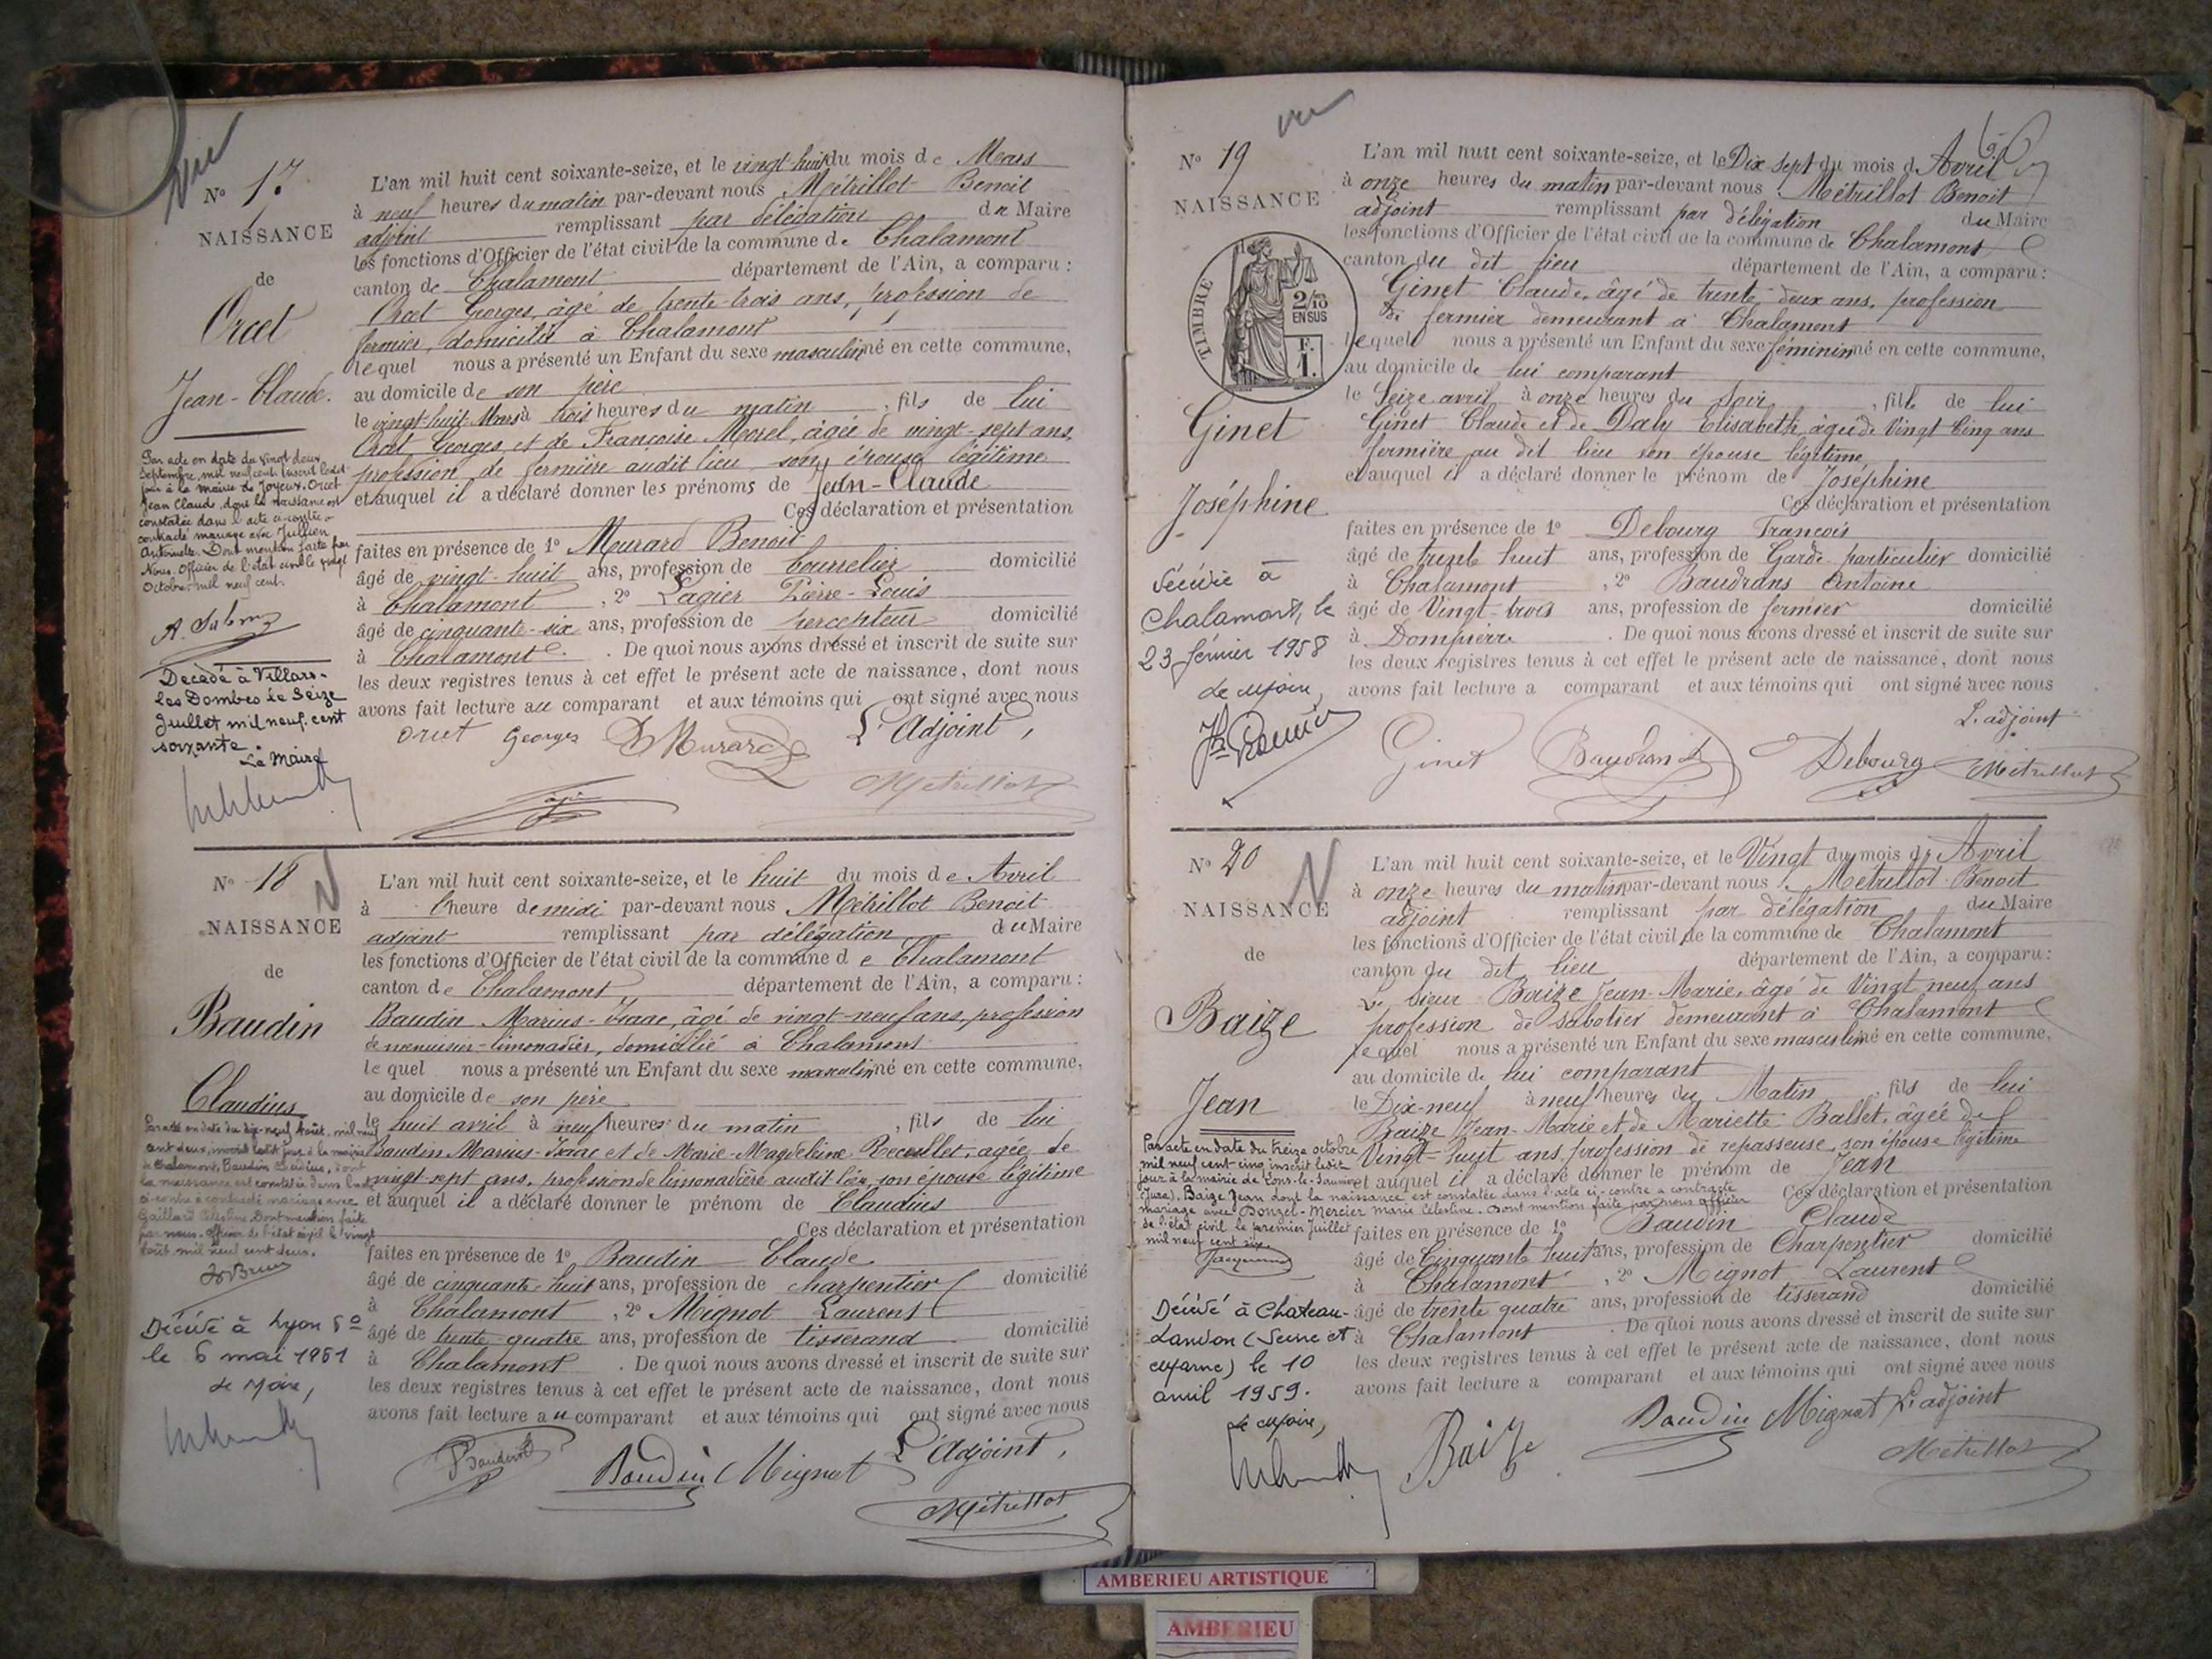 vu
N° 17
NAISSANCE
de
Orcet
Jean-Claude.
Par acte en date du vingt deux
Septembre, mil neuf cent, inscrit ledit
jour à la mairie de Joyeux. Orcet
Jean Claude, dont la naissance est
constatée dans l'acte ci-contre a
contracté mariage avec Jullien
Antoinette. Dont mention faite par
Nous. Officier de l'état civil le vingt
Octobre mil neuf cent.
Décédé à Villars-
les Dombes le Seize
Juillet mil neuf cent
soixante.
Le Maire
L'an mil huit cent soixante-seize, et le vingt-huit du mois de Mars
à neuf heures du matin par-devant nous Métrillot Benoit
adjoint remplissant par délégation du Maire
les fonctions d'Officier de l'état civil de la commune de Chalamont
canton de Chalamont département de l'Ain, a comparu :
Orcet Georges, âgé de trente-trois ans, profession de
fermier, domicilié à Chalamont
lequel nous a présenté un Enfant du sexe masculin né en cette commune,
au domicile de son père
le vingt-huit Mars à trois heures du matin, fils de lui
Orcet Georges, et de Françoise Morel, âgée de vingt-sept ans,
profession de fermière audit lieu son épouse légitime
et auquel il a déclaré donner les prénoms de Jean-Claude
Ces déclaration et présentation
faites en présence de 1° Meurard Benoit
âgé de vingt-huit ans, profession de bourrelier domicilié
à Chalamont, 2° Lagier Pierre-Louis
âgé de cinquante-six ans, profession de percepteur domicilié
à Chalamont. De quoi nous avons dressé et inscrit de suite sur
les deux registres tenus à cet effet le présent acte de naissance, dont nous
avons fait lecture au comparant et aux témoins qui ont signé avec nous
L'Adjoint,
orcet Georges Murard
Métrillot
N° 18
NAISSANCE
de
Baudin
Claudius
Par acte en date du dix-neuf Août, mil neuf
cent deux, inscrit ledit jour à la mairie
de Chalamont, Baudin Claudius, dont
la naissance est constatée dans l'acte
ci-contre a contracté mariage avec
Gaillard Célestine Dont mention faite
par nous. Officier de l'état civil le vingt
Août mil neuf cent deux.
Décédé à Lyon 5°
le 6 mai 1961
Le Maire,
L'an mil huit cent soixante-seize, et le huit du mois de Avril
à l'heure de midi par-devant nous Métrillot Benoit
adjoint remplissant par délégation du Maire
les fonctions d'Officier de l'état civil de la commune de Chalamont
canton de Chalamont département de l'Ain, a comparu :
Baudin Marius-Isaac, âgé de vingt-neuf ans, profession
de menuisier-limonadier, domicilié à Chalamont
lequel nous a présenté un Enfant du sexe masculin né en cette commune,
au domicile de son père
le huit avril à neuf heures du matin, fils de lui
Baudin Marius-Isaac et de Marie-Magdeleine, agée de
vingt-sept ans, profession de limonadière audit lieu, son épouse légitime
et auquel il a déclaré donner le prénom de Claudius
Ces déclaration et présentation
faites en présence de 1° Baudin Claude
âgé de cinquante-huit ans, profession de charpentier domicilié
à Chalamont, 2° Mignot Laurent
âgé de trente-quatre ans, profession de tisserand domicilié
à Chalamont. De quoi nous avons dressé et inscrit de suite sur
les deux registres tenus à cet effet le présent acte de naissance, dont nous
avons fait lecture au comparant et aux témoins qui ont signé avec nous
L'Adjoint,
Baudin Baudin Mignot
Métrillot
vu
N° 19
NAISSANCE
TIMBRE
2/10
EN SUS
F.
1.
Ginet
Joséphine
Décédée à
Chalamont, le
23 février 1958
Le Maire,
L'an mil huit cent soixante-seize, et le Dix sept du mois d'Avril
à onze heures du matin par-devant nous Métrillot Benoit
adjoint remplissant par délégation du Maire
les fonctions d'Officier de l'état civil de la commune de Chalamont
canton du dit lieu département de l'Ain, a comparu :
Ginet Claude, âgé de trente-deux ans, profession
de fermier demeurant à Chalamont
lequel nous a présenté un Enfant du sexe féminin né en cette commune,
au domicile de lui comparant
le Seize avril à onze heures du Soir, fille de lui
Ginet Claude et de Daly Elisabeth, agée de Vingt Cinq ans
fermière au dit lieu son épouse légitime
et auquel il a déclaré donner le prénom de Joséphine
Ces déclaration et présentation
faites en présence de 1° Debourg François
âgé de trente huit ans, profession de Garde particulier domicilié
à Chalamont, 2° Baudrans Antoine
âgé de Vingt-trois ans, profession de fermier domicilié
à Dompierre. De quoi nous avons dressé et inscrit de suite sur
les deux registres tenus à cet effet le présent acte de naissance, dont nous
avons fait lecture a comparant et aux témoins qui ont signé avec nous
L'adjoint
Ginet Baudrand Debourg Métrillot
N° 20
NAISSANCE
de
Baize
Jean
Par acte en date du treize octobre
mil neuf cent-cinq inscrit ledit
jour à la mairie de Lons-le-Saunier
(Jura). Baize Jean dont la naissance est constatée dans l'acte ci-contre a contracté
mariage avec Ponzel-Mercier Marie Célestine. Dont mention faite par nous officier
de l'état civil le premier Juillet
mil neuf cent six.
Décédé à Chateau-
Landon (Seine et
Marne) le 10
avril 1959.
Le Maire,
L'an mil huit cent soixante-seize, et le Vingt du mois d'Avril
à onze heures du matin par-devant nous Métrillot Benoit
adjoint remplissant par délégation du Maire
les fonctions d'Officier de l'état civil de la commune de Chalamont
canton du dit lieu département de l'Ain, a comparu :
Le Sieur Baize Jean-Marie, âgé de Vingt neuf ans
profession de sabotier demeurant à Chalamont
lequel nous a présenté un Enfant du sexe masculin né en cette commune,
au domicile de lui comparant
le Dix-neuf à neuf heures du Matin, fils de lui
Baize Jean-Marie et de Mariette Ballet, agée de
Vingt-huit ans, profession de repasseuse, son épouse légitime
et auquel il a déclaré donner le prénom de Jean
Ces déclaration et présentation
faites en présence de 1° Baudin Claude
âgé de Cinquante huit ans, profession de Charpentier domicilié
à Chalamont, 2° Mignot Laurent
âgé de trente quatre ans, profession de tisserand domicilié
à Chalamont. De quoi nous avons dressé et inscrit de suite sur
les deux registres tenus à cet effet le présent acte de naissance, dont nous
avons fait lecture a comparant et aux témoins qui ont signé avec nous
Baize Baudin Mignot L'adjoint
Métrillot
AMBERIEU ARTISTIQUE
AMBERIEU